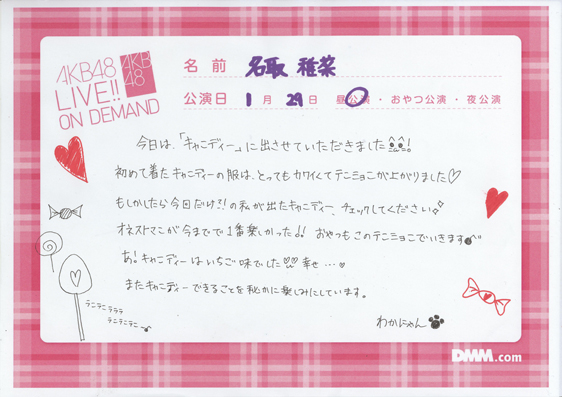 AKB48
LIVE!!
ON DEMAND
AKB
48
名前 名取 稚菜
公演日 1月29日 昼公演・おやつ公演・夜公演
今日は、「キャンディー」に出させていただきました!
初めて着たキャンディーの服は、とってもカワイくてテンションが上がりました♡
もしかしたら今回だけ?!の私が出たキャンディー、チェックしてください
オネストマンが今までで1番楽しかった♪! おやつもこのテンションでいきます
あ!キャンディーはいちご味でした 幸せ…♡
またキャンディーできることを秘かに楽しみにしています。
テニテニテテテ
テニテニテニ〜♪
わかにゃん
DMM.com